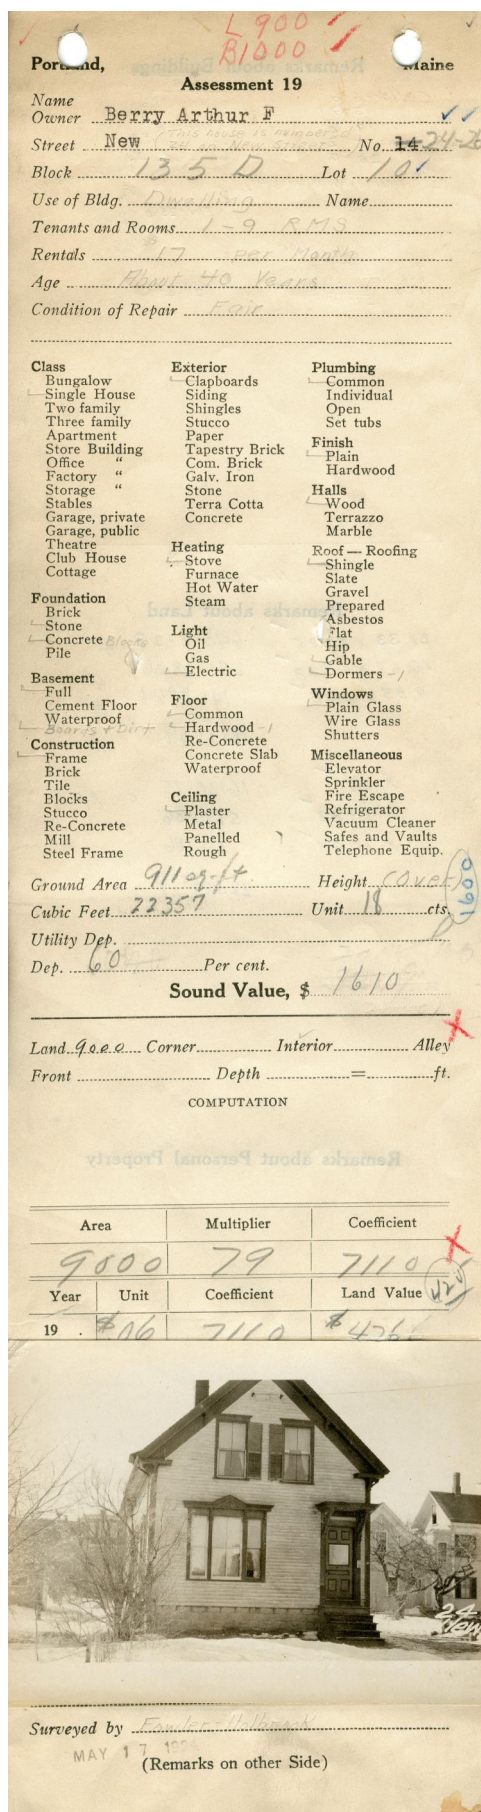 L 900
B 1000
Portland, Maine
Assessment 19
Name
Owner Berry Arthur F
(This house is numbered
24 on New Street)
Street New No. 14 24-26
Block 135 D Lot 10
Use of Bldg. Dwelling Name
Tenants and Rooms 1-9 RMS
Rentals $17 per Month
Age About 40 Years
Condition of Repair Fair
Class
Bungalow
Single House
Two family
Three family
Apartment
Store Building
Office "
Factory "
Storage "
Stables
Garage, private
Garage, public
Theatre
Club House
Cottage
Foundation
Brick
Stone
Concrete Blocks
Pile
Basement
Full
Cement Floor
Waterproof
Boards + Dirt
Construction
Frame
Brick
Tile
Blocks
Stucco
Re-Concrete
Mill
Steel Frame
Exterior
Clapboards
Siding
Shingles
Stucco
Paper
Tapestry Brick
Com. Brick
Galv. Iron
Stone
Terra Cotta
Concrete
Heating
Stove
Furnace
Hot Water
Steam
Light
Oil
Gas
Electric
Floor
Common
Hardwood -1
Re-Concrete
Concrete Slab
Waterproof
Ceiling
Plaster
Metal
Panelled
Rough
Plumbing
Common
Individual
Open
Set tubs
Finish
Plain
Hardwood
Halls
Wood
Terrazzo
Marble
Roof — Roofing
Shingle
Slate
Gravel
Prepared
Asbestos
Flat
Hip
Gable
Dormers -1
Windows
Plain Glass
Wire Glass
Shutters
Miscellaneous
Elevator
Sprinkler
Fire Escape
Refrigerator
Vacuum Cleaner
Safes and Vaults
Telephone Equip.
Ground Area 911 sq. ft. Height (Over)
Cubic Feet 22357 Unit 18 cts.
1600
Utility Dep.
Dep. 60 Per cent.
Sound Value, $ 1610
Land 9000 Corner Interior Alley
Front Depth = ft.
COMPUTATION
Area Multiplier Coefficient
9000 79 7110
Year Unit Coefficient Land Value
19 . $ .06 7110 $ 426
24
New
Surveyed by Fowler - Holbrook
MAY 17
(Remarks on other Side)